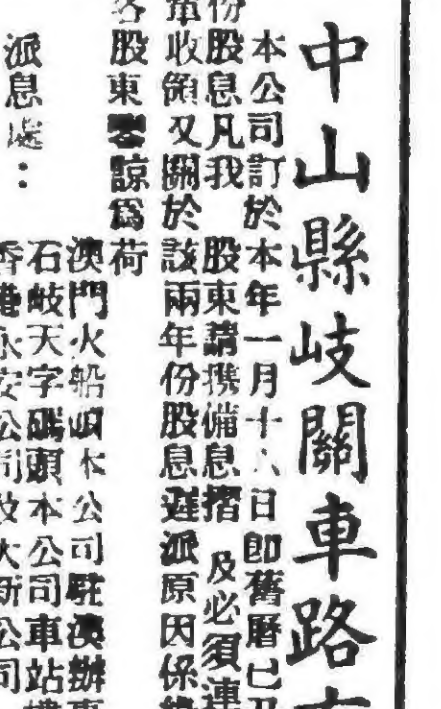 中山縣岐關車路
本公司訂於本年一月十八日卽舊曆已
份股息凡我 股東請携備息摺 及必須連
單收領又關於該兩年份股息遲派原因係
各股東 諒爲荷
澳門火船 本公司駐澳辦事
派息處： 石岐天字碼頭本公司車站
香港永安公司 大新公司